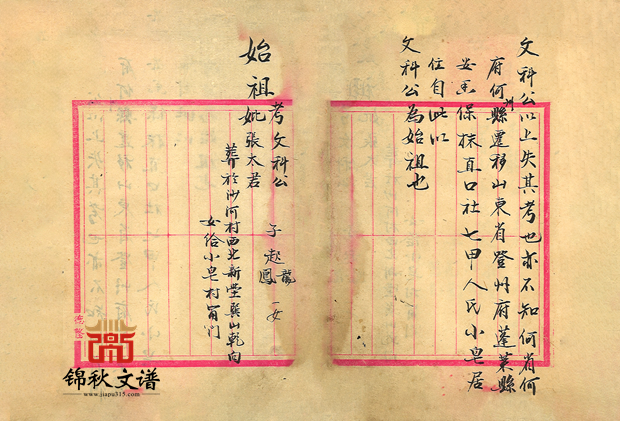 文科公以上失其考也亦不知何省何
府何州縣遷移山東省登州府蓬萊縣
安香保抹直口社七甲人氏小皂居
住自此以
文科公為始祖也
始祖
考文科公
妣張太君
子起龍
鳳
一女
葬於沙河村西北新塋巽山乾向
女給小皂村甯門
锦秋文谱
www.jiapu315.com